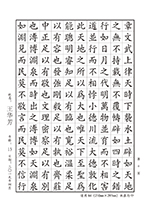 章文武上律天時下襲水土辟如天地
之無不持載無不覆幬辟如四時之錯
行如日月之代明萬物並育而不相害
道並行而不相悖小德川流大德敦化
此天地之所以為大也唯天下至聖為
能聰明睿知足以有臨也寬裕溫柔足
以有容也發強剛毅足以有執也齊莊
中正足以有敬也文理密察足以有別
也溥博淵泉而時出之溥博如天淵泉
如淵見而民莫不敬言而民莫不信行